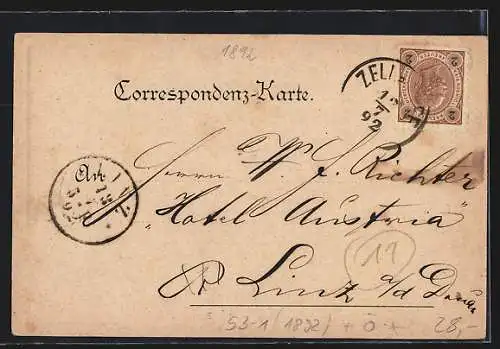 1892
Correspondenz-Karte.
ZELL
12
7
92
2 2
2 2
An
LINZ
Herrn W. J. Richter
"Hotel Austria"
Linz a/d Donau
19
53-1 (1892)
28,-